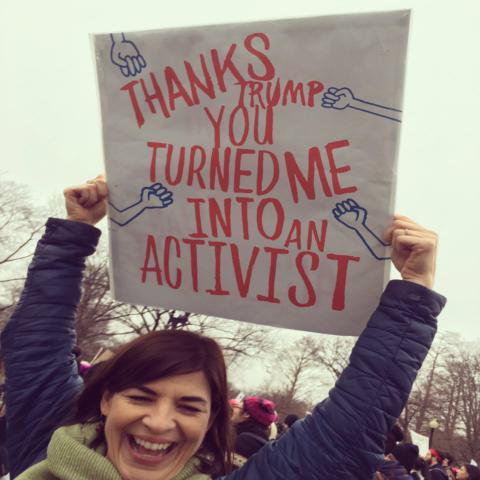 THANKS
TRUMP
YOU
TURNED ME
INTO AN
ACTIVIST